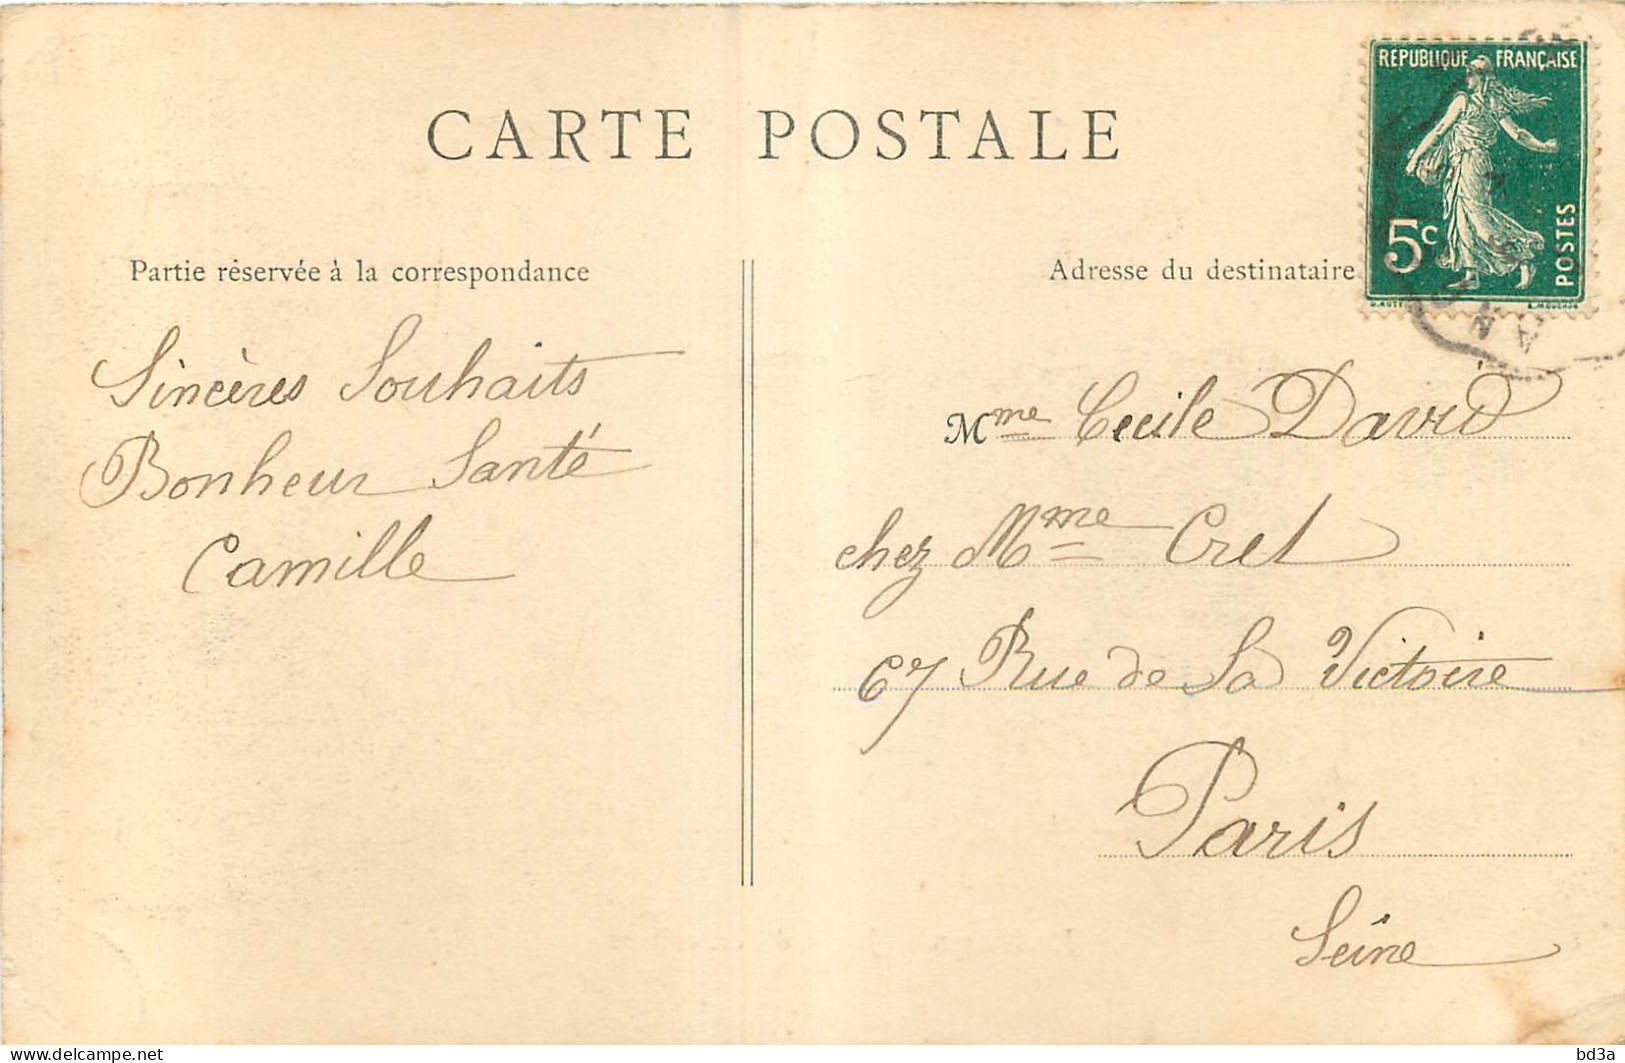 CARTE POSTALE
RÉPUBLIQUE FRANÇAISE
5c
POSTES
Partie réservée à la correspondance
Adresse du destinataire
Sincères Souhaits
Bonheur Santé
Camille
Mme Cecile David
chez Mme Cret
67 Rue de La Victoire
Paris
Seine
Delcampe.net
bd3a